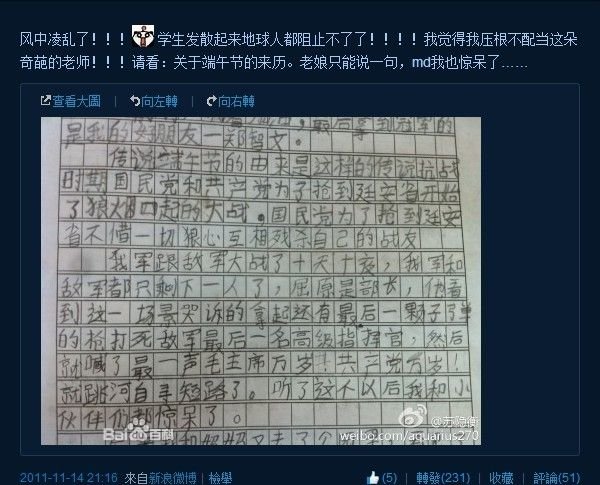 风中凌乱了！！！学生发散起来地球人都阻止不了了！！！！我觉得我压根不配当这朵
奇葩的老师！！！请看：关于端午节的来历。老娘只能说一句，md我也惊呆了……
查看大圖 | 向左轉 | 向右轉
最后拿到冠军的
是我的好朋友一郑智文。
传说端午节的由来是这样的传说抗战
时期国民党和共产党为了抢到廷安省开始
了狼火四起的大战。国民党为了抢到廷安
省不惜一切狠心互相残杀自己的战友
我军跟敌军大战了十天十夜，我军和
敌军都只剩下一人了，屈原是部长，他看
到这一场景哭诉的拿起还有最后一颗子弹
的枪打死敌军最后一名高级指挥官，然后
就喊了最一声毛主席万岁！共产党万岁！
就跳河自寻短路了。听了这个以后我和小
伙伴们都惊呆了。
Bai百科
@苏隐衡
weibo.com/aquarius270
2011-11-14 21:16 來自新浪微博 | 檢舉
(5) | 轉發(231) | 收藏 | 評論(51)